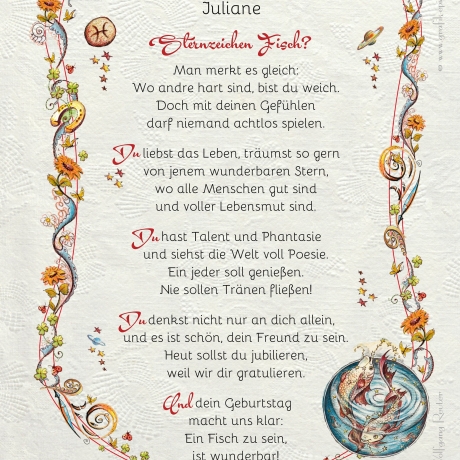 Juliane
Sternzeichen Fisch?
Man merkt es gleich:
Wo andre hart sind, bist du weich.
Doch mit deinen Gefühlen
darf niemand achtlos spielen.
Du liebst das Leben, träumst so gern
von jenem wunderbaren Stern,
wo alle Menschen gut sind
und voller Lebensmut sind.
Du hast Talent und Phantasie
und siehst die Welt voll Poesie.
Ein jeder soll genießen.
Nie sollen Tränen fließen!
Du denkst nicht nur an dich allein,
und es ist schön, dein Freund zu sein.
Heut sollst du jubilieren,
weil wir dir gratulieren.
Und dein Geburtstag
macht uns klar:
Ein Fisch zu sein,
ist wunderbar!